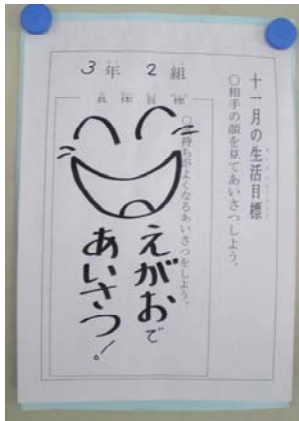 十一月の生活目標
○相手の顔を見てあいさつしよう。
3年 2組
具体目標
○気持ちがよくなるあいさつをしよう。
えがおで
あいさつ!